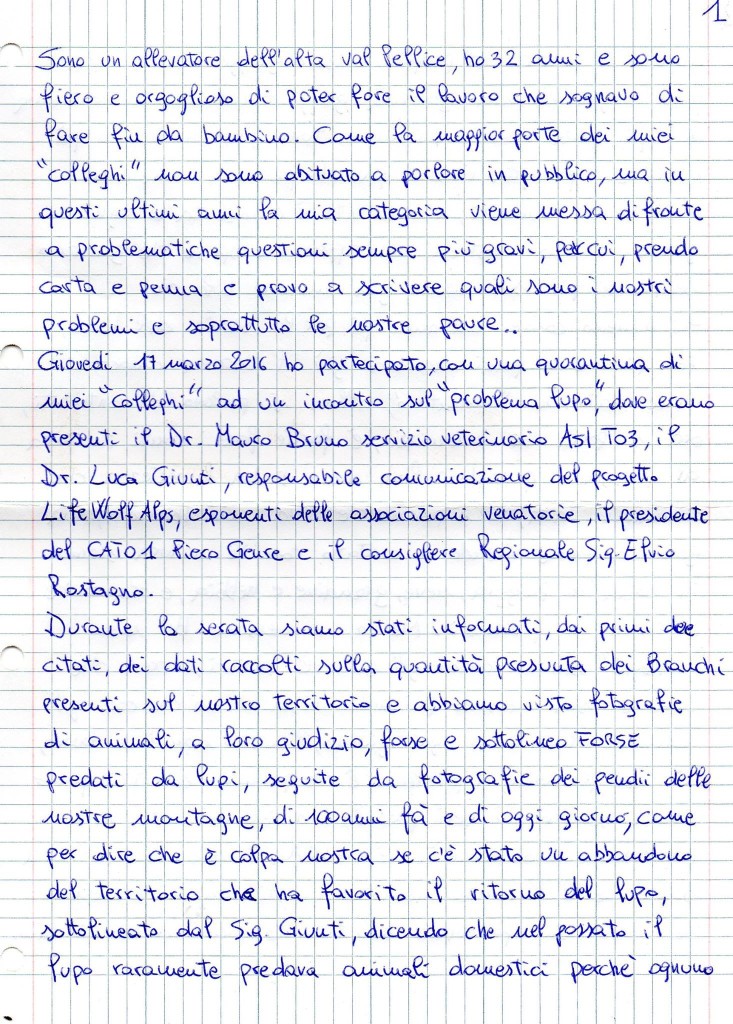 1
Sono un allevatore dell'alta val Pellice, ho 32 anni e sono
fiero e orgoglioso di poter fare il lavoro che sognavo di
fare fin da bambino. Come la maggior parte dei miei
"colleghi" non sono abituato a parlare in pubblico, ma in
questi ultimi anni la mia categoria viene messa di fronte
a problematiche questioni sempre più gravi, per cui, prendo
carta e penna e provo a scrivere quali sono i nostri
problemi e soprattutto le nostre paure..
Giovedì 17 marzo 2016 ho partecipato, con una quarantina di
miei "colleghi" ad un incontro sul "problema lupo", dove erano
presenti il Dr. Mauro Bruno servizio veterinario Asl TO3, il
Dr. Luca Giunti, responsabile comunicazione del progetto
Life Wolf Alps, esponenti delle associazioni venatorie, il presidente
del CATO1 Piero Geure e il consigliere Regionale Sig. Elvio
Rostagno.
Durante la serata siamo stati informati, dai primi due
citati, dei dati raccolti sulla quantità presunta dei Branchi
presenti sul nostro territorio e abbiamo visto fotografie
di animali, a loro giudizio, forse e sottolineo FORSE
predati da lupi, seguite da fotografie dei pendii delle
nostre montagne, di 100 anni fà e di oggi giorno, come
per dire che è colpa nostra se c'è stato un abbandono
del territorio che ha favorito il ritorno del lupo,
sottolineato dal Sig. Giunti, dicendo che nel passato il
lupo raramente predava animali domestici perchè ognuno